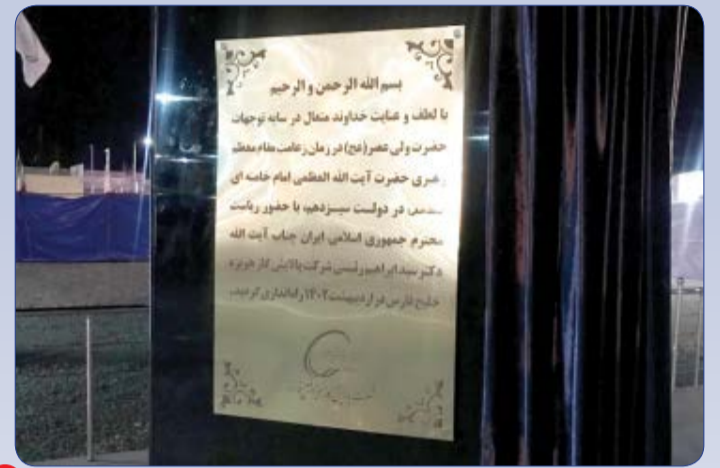 بسم الله الرحمن و الرحیم
با لطف و عنایت خداوند متعال در سایه توجهات
حضرت ولی عصر(عج) در زمان زعامت مقام معظم
رهبری حضرت آیت الله العظمی امام خامنه ای
در دولت سیزدهم، با حضور ریاست
محترم جمهوری اسلامی ایران جناب آیت الله
دکتر سید ابراهیم رئیسی شرکت پالایش گاز هویزه
خلیج فارس در اردیبهشت ۱۴۰۲ راه اندازی گردید.